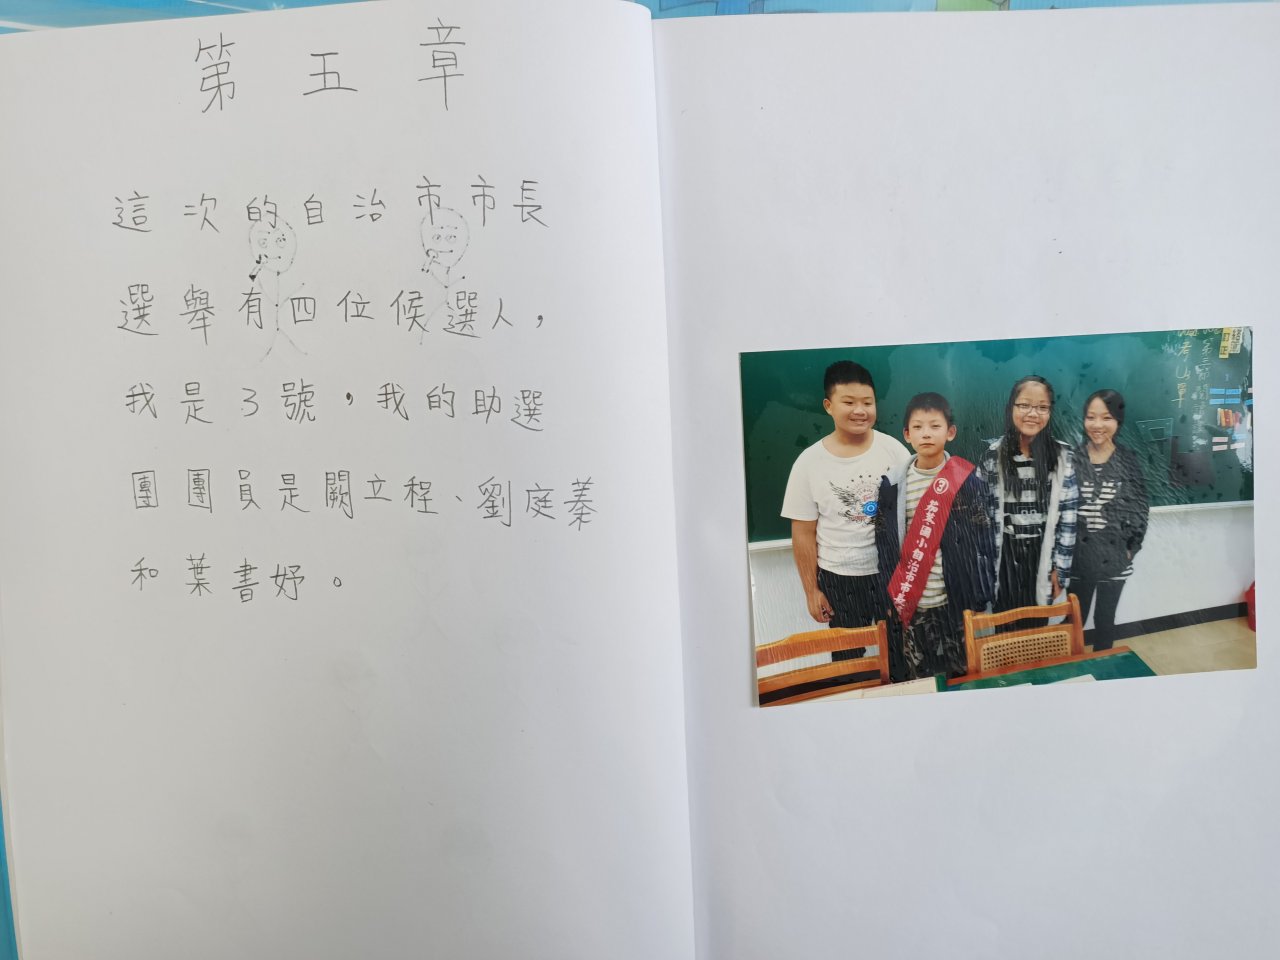 第五章
這次的自治市市長
選舉有四位候選人，
我是3號，我的助選
團團員是闕立程、劉庭蓁
和葉書妤。
③ 茄苳國小自治市市長